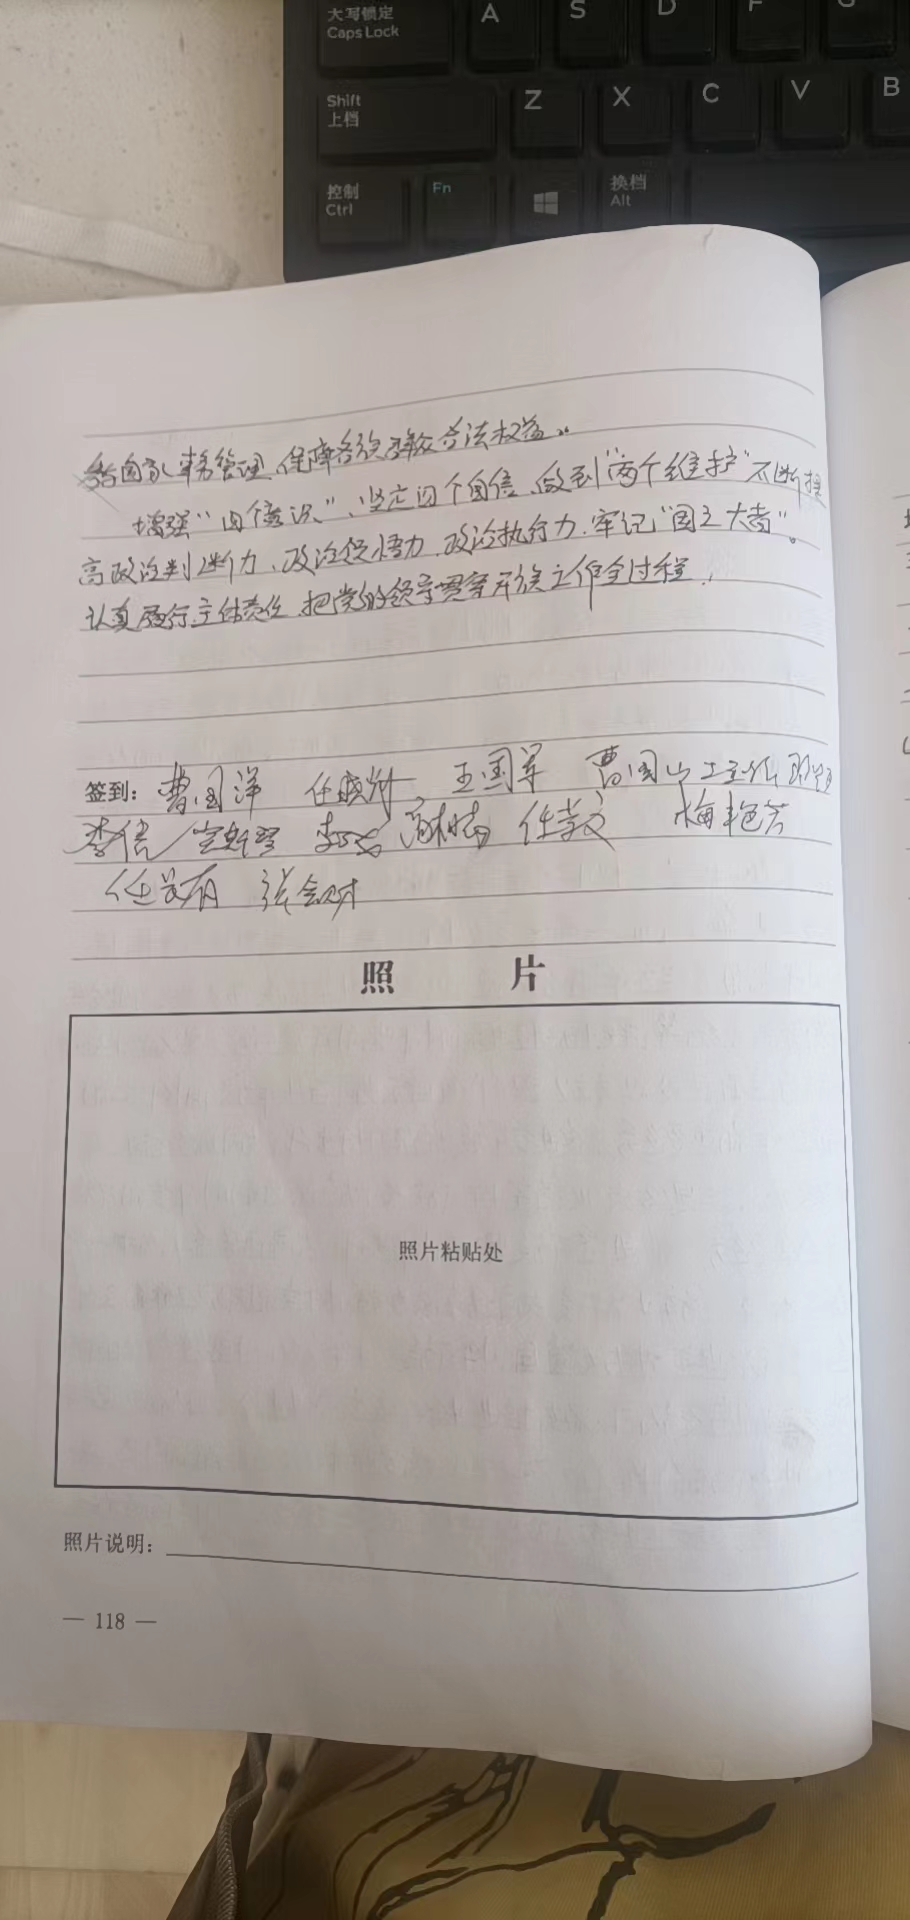 大写锁定 A S D F G
Caps Lock
Shift Z X C V B
上档
控制 Fn 换档
Ctrl Alt
与国家事务管理、保障各族群众合法权益。
增强“四个意识”、坚定四个自信、做到“两个维护”不断提
高政治判断力、政治领悟力、政治执行力、牢记“国之大者”。
认真履行主体责任 把党的领导贯穿民族工作全过程,
签到: 曹国洋 任晓妙 王国军 曹国山
李信 高树 任学文 梅艳芳
任 有 张会财
照 片
照片粘贴处
照片说明:
— 118 —